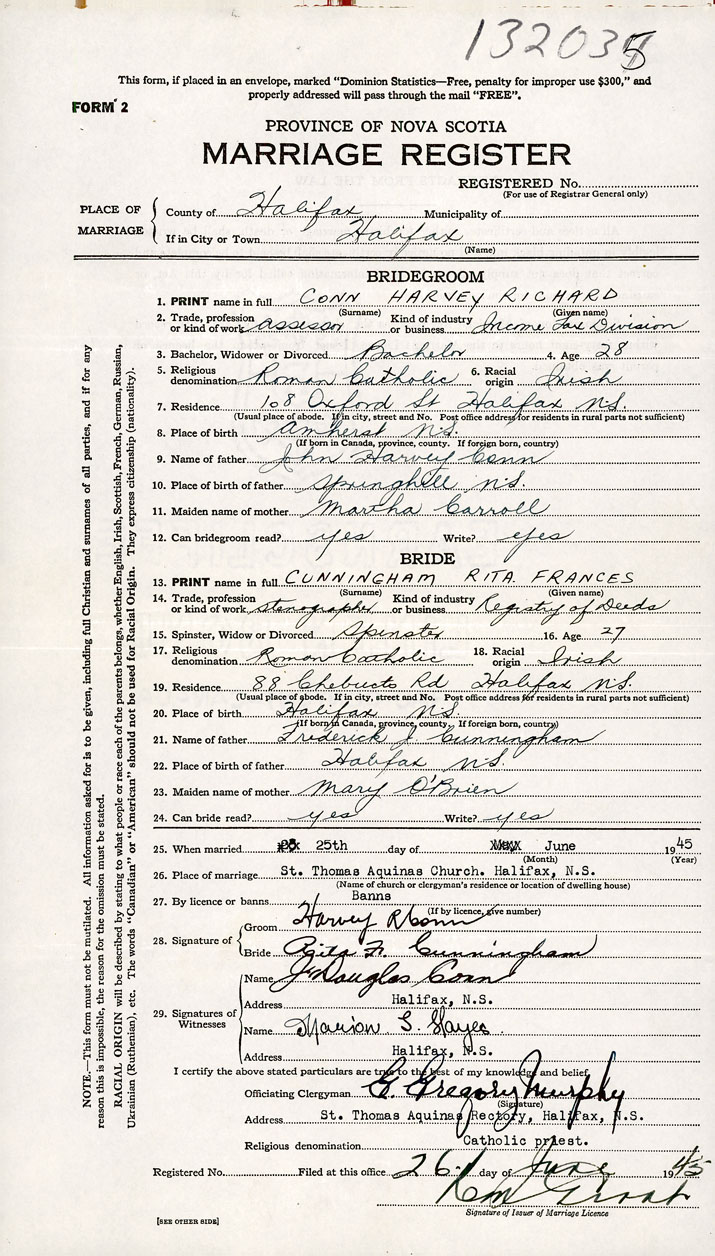 132035
This form, if placed in an envelope, marked "Dominion Statistics—Free, penalty for improper use $300," and
properly addressed will pass through the mail "FREE".
FORM 2
PROVINCE OF NOVA SCOTIA
MARRIAGE REGISTER
REGISTERED No.
(For use of Registrar General only)
PLACE OF MARRIAGE
County of Halifax Municipality of
If in City or Town Halifax
(Name)
BRIDEGROOM
1. PRINT name in full CONN HARVEY RICHARD
(Surname) (Given name)
2. Trade, profession or kind of work assessor Kind of industry or business Income Tax Division
3. Bachelor, Widower or Divorced Bachelor 4. Age 28
5. Religious denomination Roman Catholic 6. Racial origin Irish
7. Residence 108 Oxford St Halifax N.S.
(Usual place of abode. If in city, street and No. Post office address for residents in rural parts not sufficient)
8. Place of birth Amherst N.S.
(If born in Canada, province, county. If foreign born, country)
9. Name of father John Harvey Conn
10. Place of birth of father Springhill N.S.
11. Maiden name of mother Martha Carroll
12. Can bridegroom read? yes Write? yes
BRIDE
13. PRINT name in full CUNNINGHAM RITA FRANCES
(Surname) (Given name)
14. Trade, profession or kind of work stenographer Kind of industry or business Registry of Deeds
15. Spinster, Widow or Divorced Spinster 16. Age 27
17. Religious denomination Roman Catholic 18. Racial origin Irish
19. Residence 88 Chebucto Rd Halifax N.S.
(Usual place of abode. If in city, street and No. Post office address for residents in rural parts not sufficient)
20. Place of birth Halifax N.S.
(If born in Canada, province, county. If foreign born, country)
21. Name of father Frederick J. Cunningham
22. Place of birth of father Halifax N.S.
23. Maiden name of mother Mary O'Brien
24. Can bride read? yes Write? yes
25. When married 25th day of June 1945
(Month) (Year)
26. Place of marriage St. Thomas Aquinas Church. Halifax, N.S.
(Name of church or clergyman's residence or location of dwelling house)
27. By licence or banns Banns
(If by licence, give number)
28. Signature of
Groom Harvey R Conn
Bride Rita F. Cunningham
29. Signatures of Witnesses
Name J Douglas Conn
Address Halifax, N.S.
Name Marion G. Hayes
Address Halifax, N.S.
I certify the above stated particulars are true to the best of my knowledge and belief
Officiating Clergyman G. Gregory Murphy
(Signature)
Address St. Thomas Aquinas Rectory, Halifax, N.S.
Religious denomination Catholic priest.
Registered No. Filed at this office 26. day of June 1945
Signature of Issuer of Marriage Licence
[SEE OTHER SIDE]
NOTE.—This form must not be mutilated. All information asked for is to be given, including full Christian and surnames of all parties, and if for any
reason this is impossible, the reason for the omission must be stated.
RACIAL ORIGIN will be described by stating to what people or race each of the parents belongs, whether English, Irish, Scottish, French, German, Russian,
Ukrainian (Ruthenian), etc. The words "Canadian" or "American" should not be used for Racial Origin. They express citizenship (nationality).